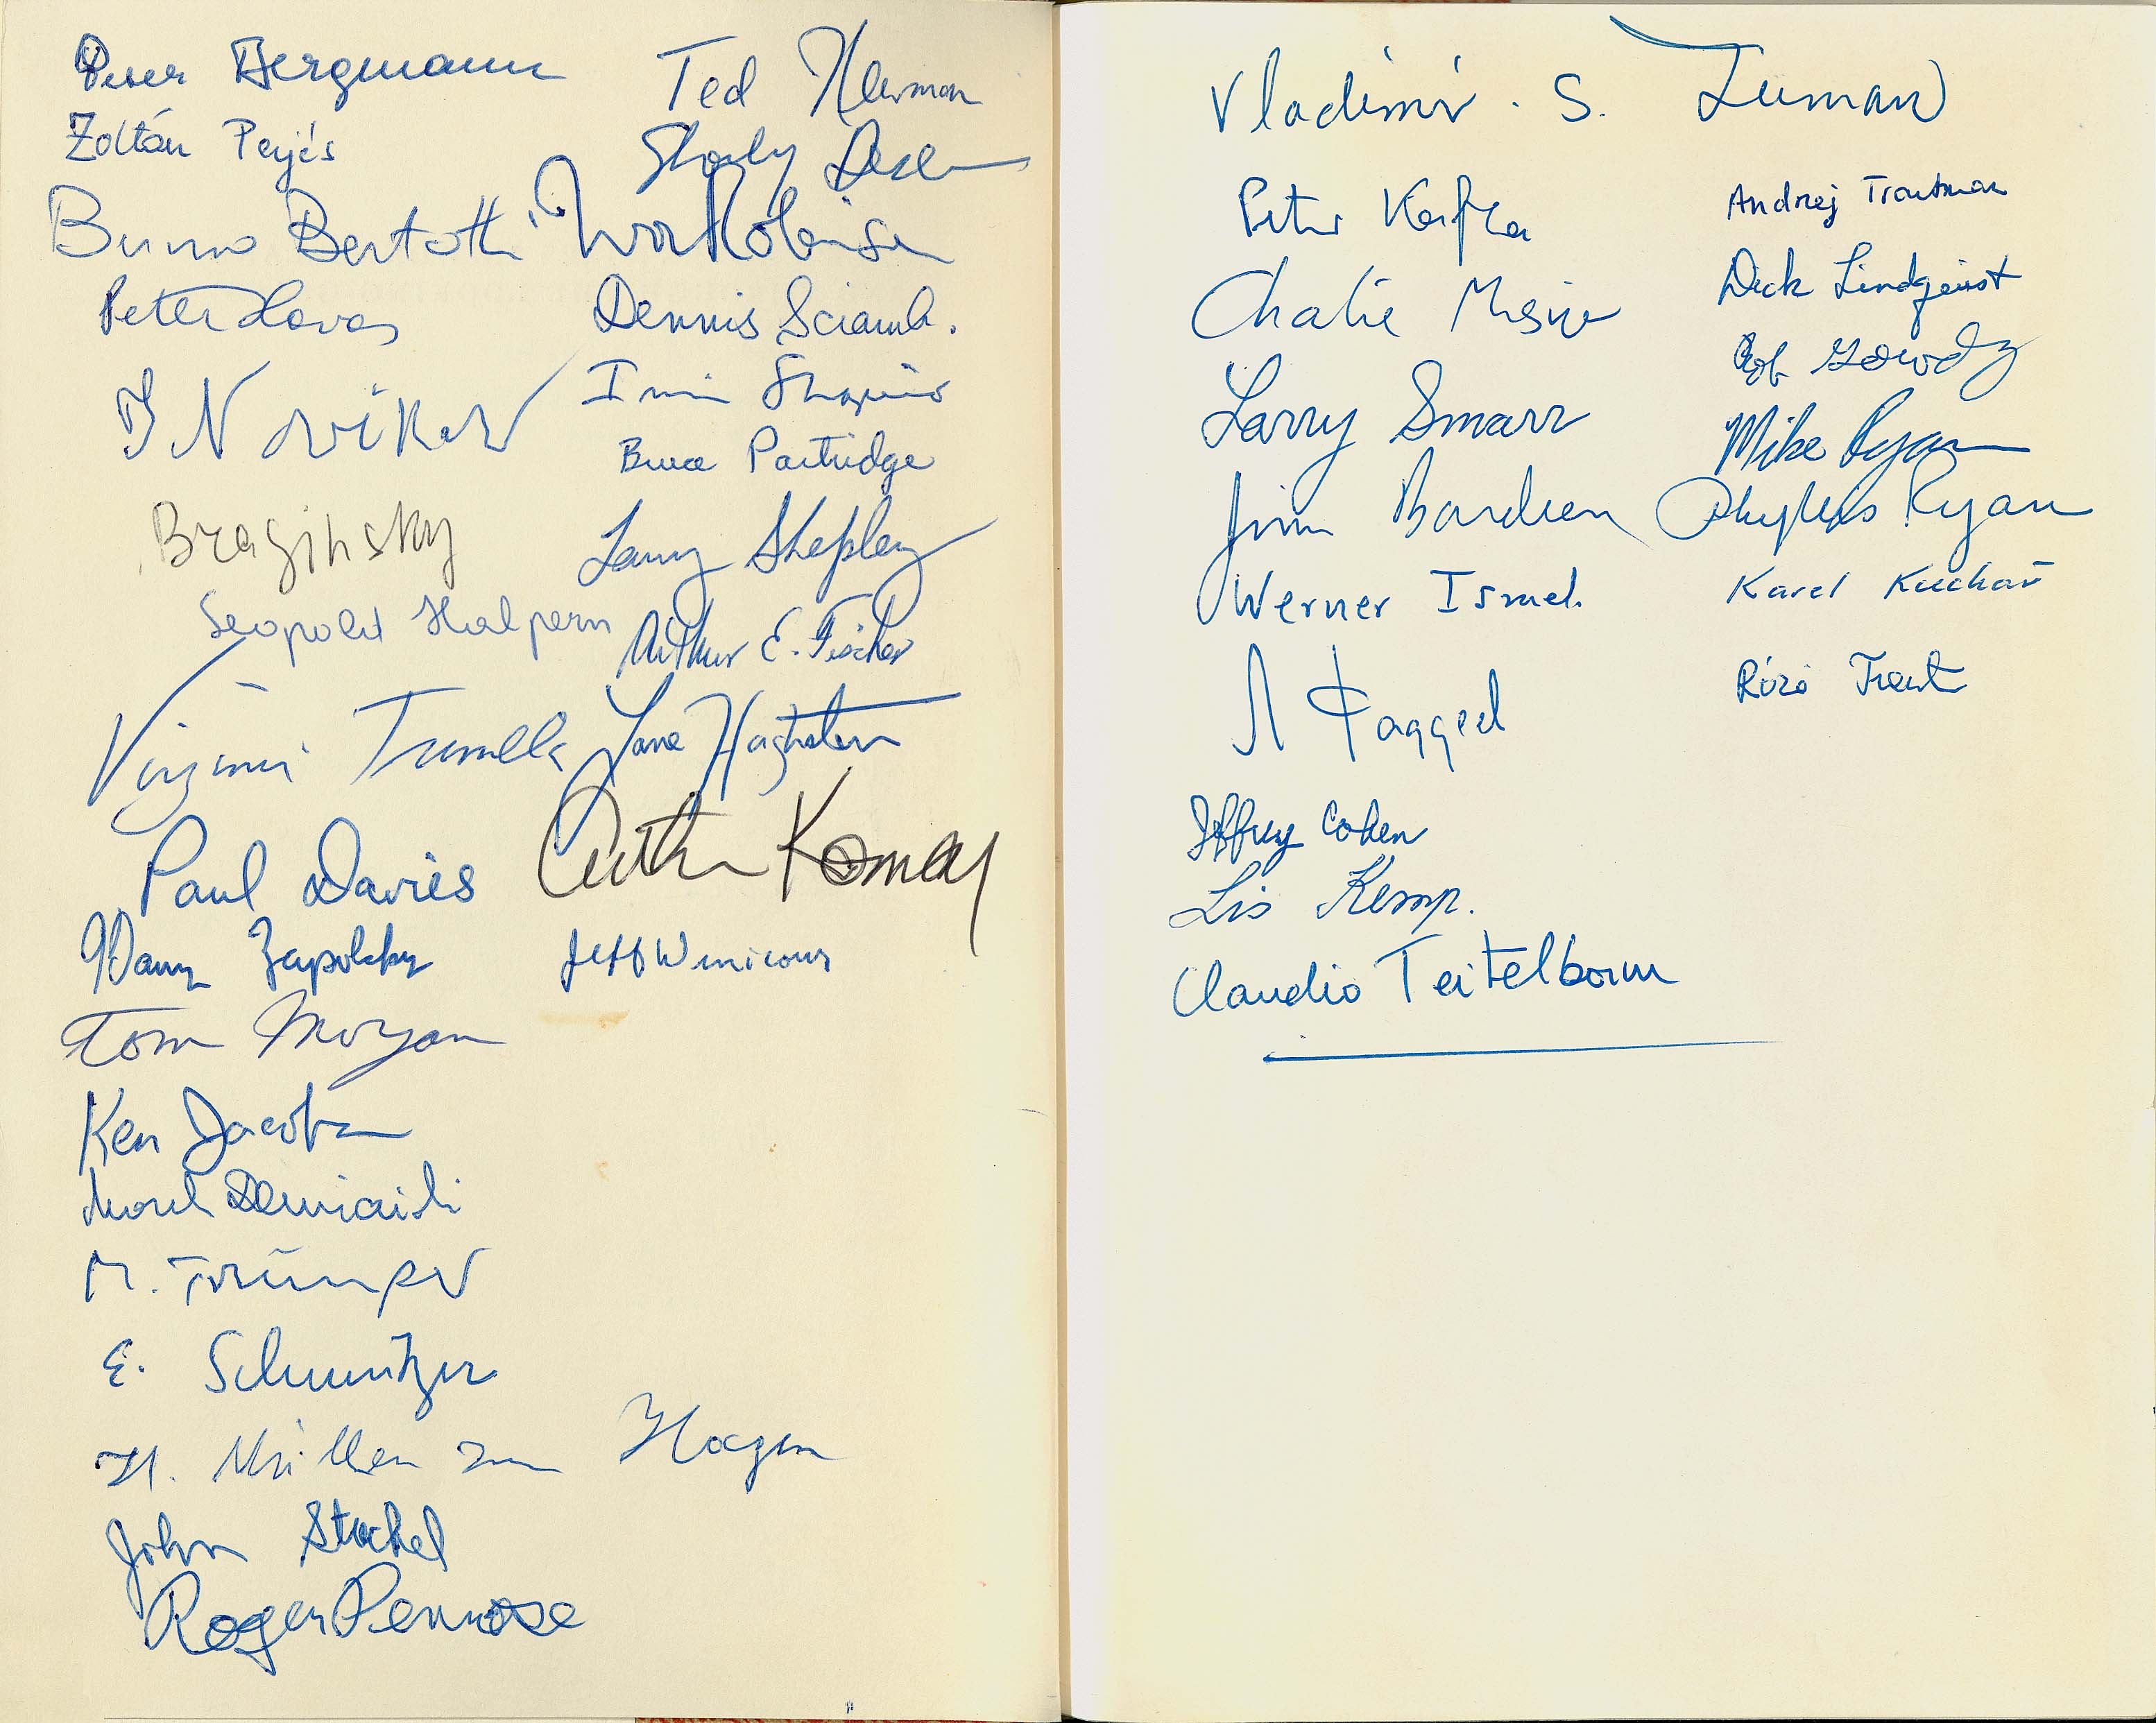 Peter Bergmann
Zoltán Perjés
Bruno Bertotti
Peter Havas
I Novikov
Braginsky
Leopold Halpern
Virginia Trimble
Paul Davies
Zapolsky
Tom Morgan
Ken Jacobs
Marek Demiański
M. Trümper
E. Schmutzer
H. Müller zum Hagen
John Stachel
Roger Penrose
Ted Newman
Stanley Deser
Ivor Robinson
Dennis Sciama.
Irwin Shapiro
Bruce Partridge
Larry Shepley
Arthur E. Fischer
Arthur Komar
Jeff Winicour
Vladimir. S.
Peter Kafka
Charlie Misner
Larry Smarr
Jim Bardeen
Werner Israel.
Jeffrey Cohen
Lis Kemp.
Claudio Teitelboim
Andrzej Trautman
Dick Lindquist
Bob Gowdy
Mike Ryan
Phyllis Ryan
Karel Kuchař
Róża Traut